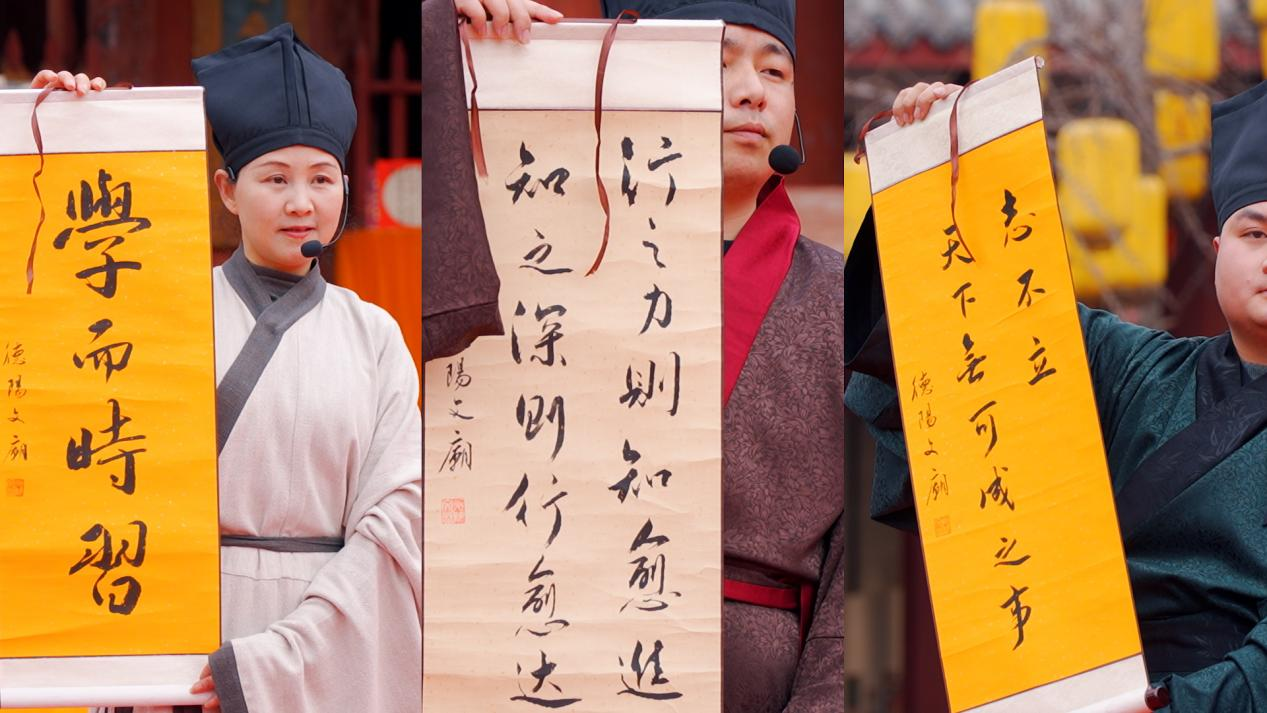 學而時習
德陽文廟
行之力則知愈進
知之深則行愈达
陽文廟
志不立
天下無可成之事
德陽文廟